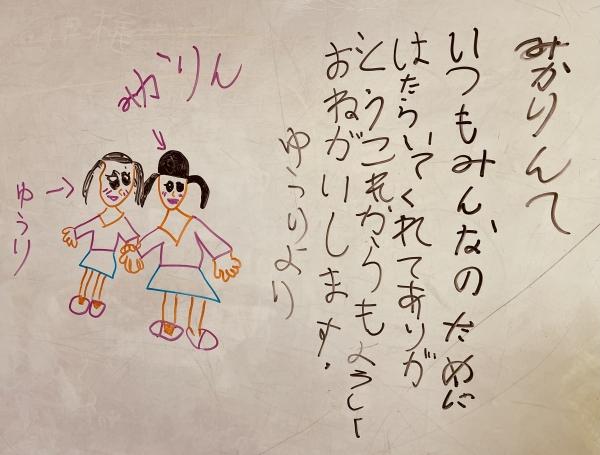 みかりんて
いつもみんなのために
はたらいてくれてありが
とうこれからもよろしく
おねがいします!
ゆうりより
みかりん
ゆうり